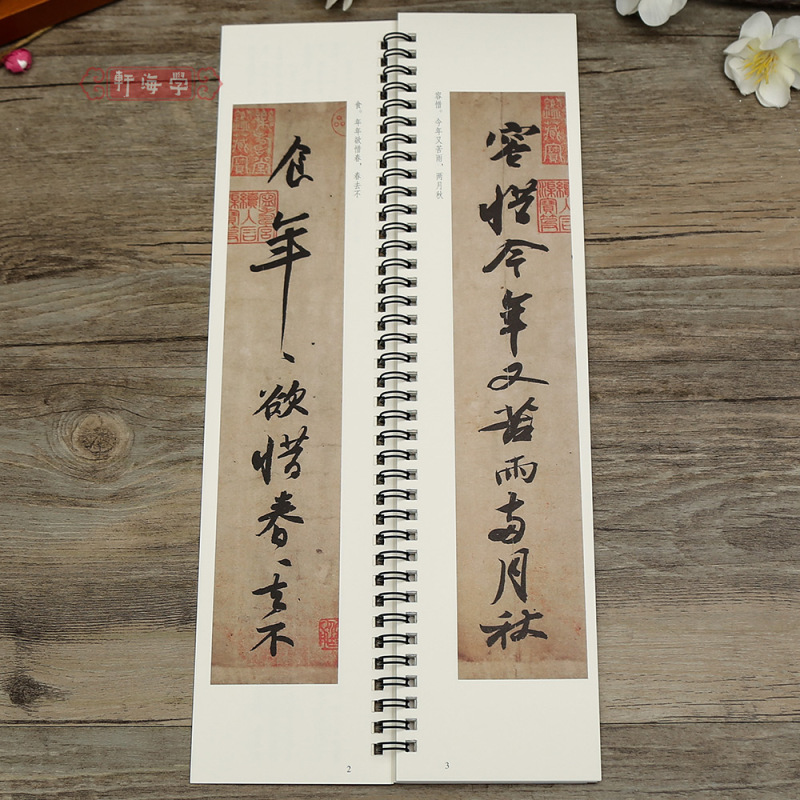 學海軒
食年、欲惜春、去不
食。年年欲惜春，春去不
2
容惜。今年又苦雨，两月秋
容惜今年又苦雨兩月秋
3